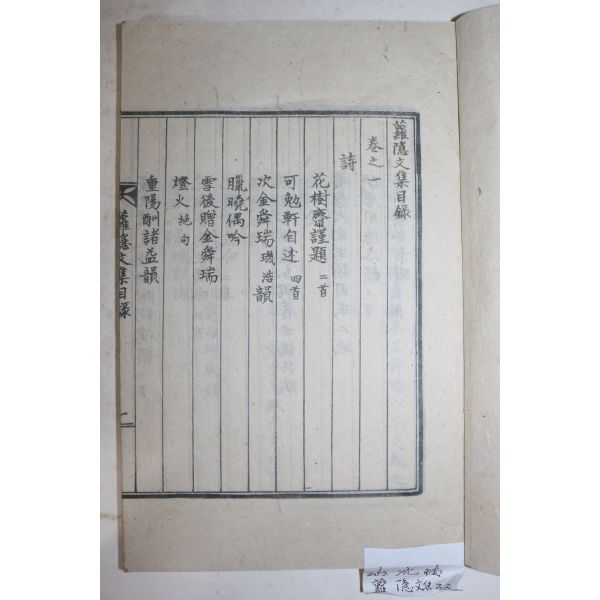 蘿隱文集目錄
卷之一
詩
花樹齋謹題 二首
可勉軒自述 四首
次金舜瑞璣浩韻
臘曉偶吟
雪後贈金舜瑞
燈火 絶句
重陽酬諸益韻
蘿隱文集目錄
一
隱文集